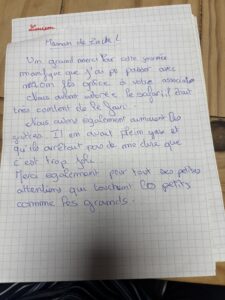 Maman de
Un grand merci pour cette journée
magnifique que j'ai pu passer avec
mon fils grâce à votre association
Nous avons adorés le safari, il était
très content de le faire.
Nous avons également aimé les
grottes. Il en avait plein yeux et
qu'ils arrêtait pas de me dire que
c'est trop
Merci également pour tout ses petites
attentions qui touchent les petits
comme les grands.